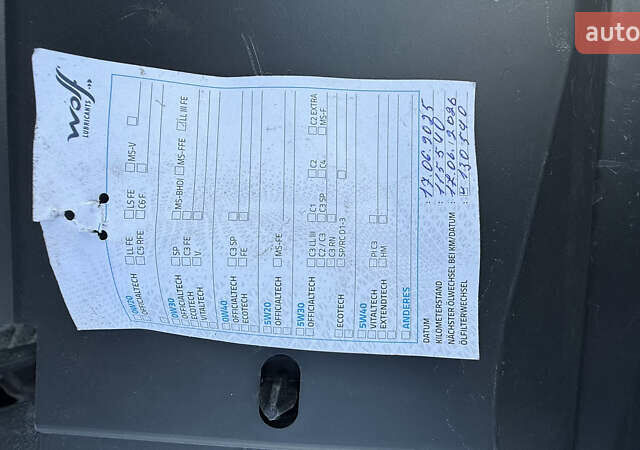 auto
Ilsom
LUBRICANTS
0W20
OFFICIALTECH
LL FE
LS FE
MS-V
C5 RFE
C6 F
0W30
OFFICIALTECH
SP
MS-BHDI
MS-FFE
LL III FE
ECOTECH
C3 FE
VITALTECH
V
0W40
OFFICIALTECH
C3 SP
ECOTECH
FE
5W20
OFFICIALTECH
MS-FE
5W30
OFFICIALTECH
C3 LL III
C1
C2
C2 EXTRA
C2 / C3
C3 SP
C4
MS-F
C3 RN
ECOTECH
SP/RC D1-3
5W40
VITALTECH
PI C3
EXTENDTECH
HM
ANDERES
DATUM : 17.06.2025
KILOMETERSTAND : 115 540
NÄCHSTER ÖLWECHSEL BEI KM/DATUM : 17.06.2026
ÖLFILTERWECHSEL : 130 540